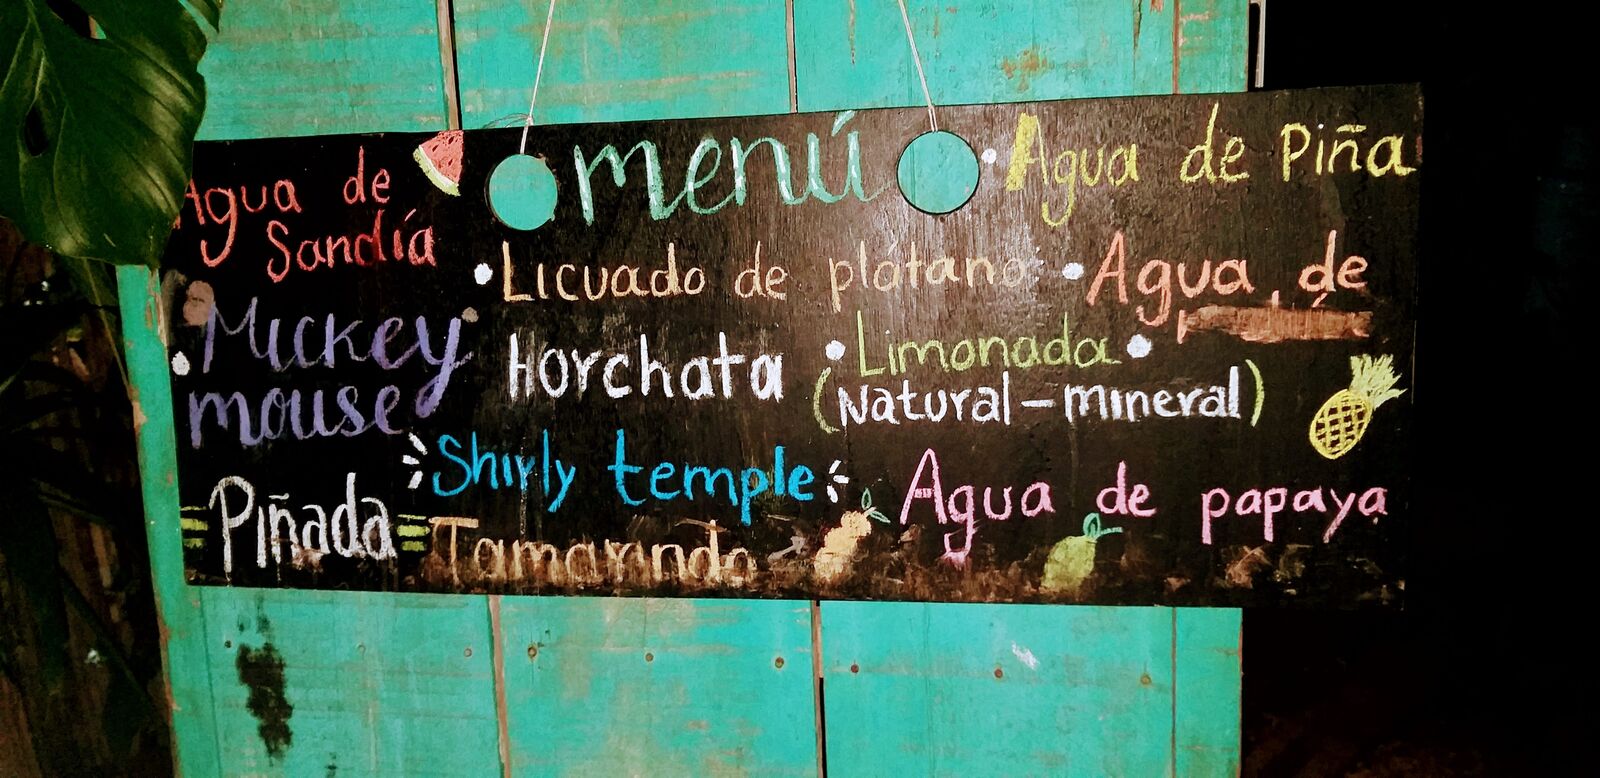 menú
Agua de
Sandía
Agua de Piña
Licuado de plátano
Agua de
Mickey
mouse
Horchata
Limonada
(Natural - mineral)
Shirly temple
Agua de papaya
Piñada
Tamarindo